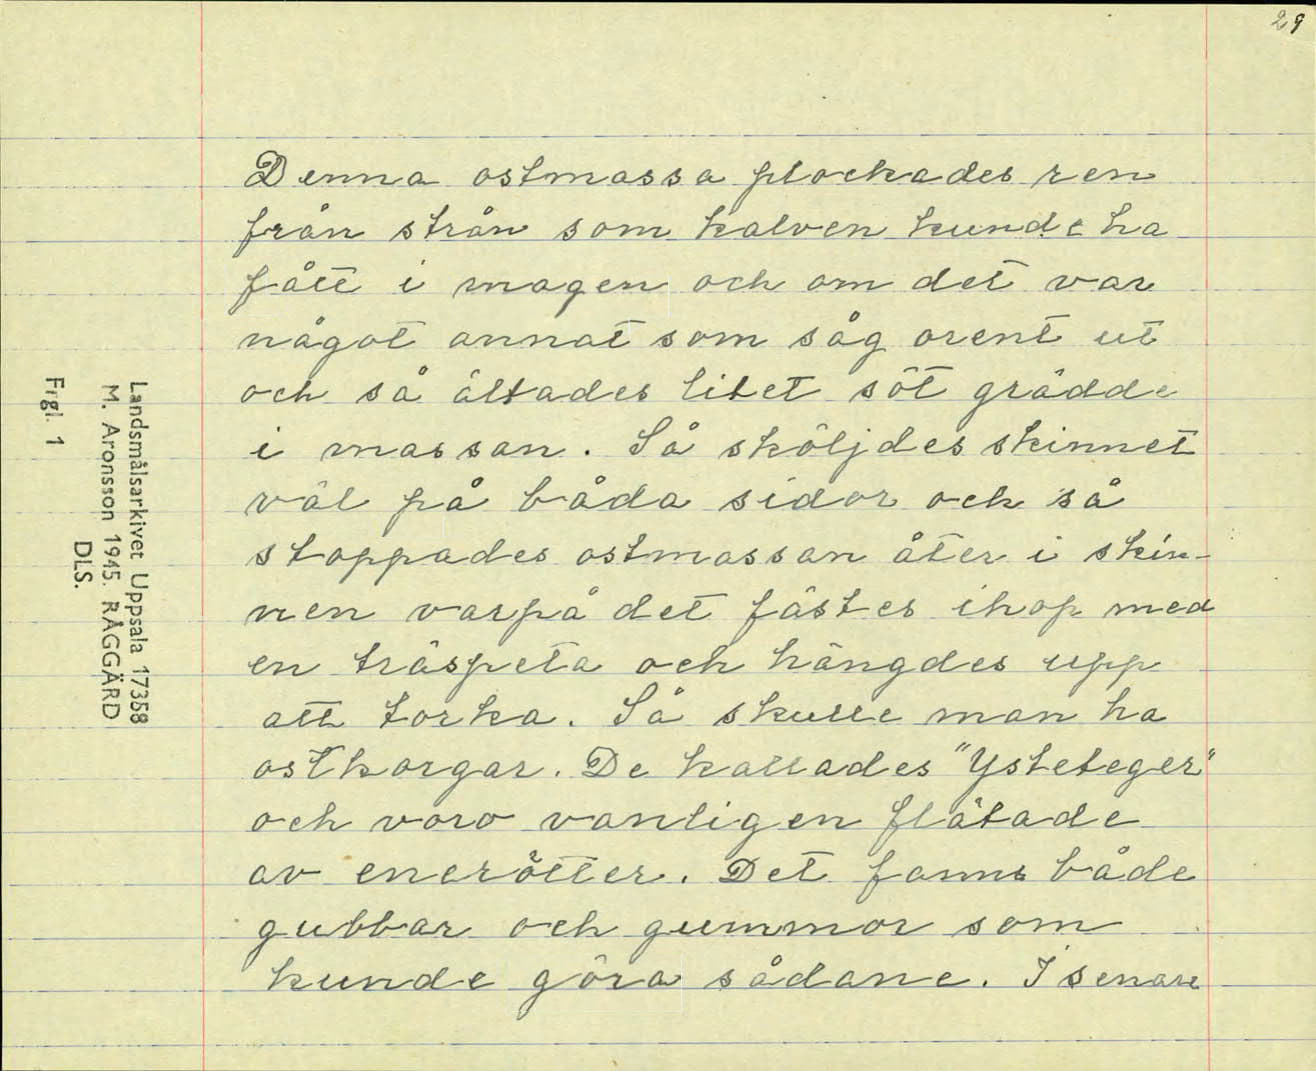 29
Denna ostmassa plockades ren
från strån som kalven kunde ha
fått i magen och om det var
något annat som såg orent ut
och så ältades litet söt grädde
i massan. Så sköljdes skinnet
väl på båda sidor och så
stoppades ostmassan åter i skin-
nen varpå det fästes ihop med
en träspeta och hängdes upp
att torka. Så skulle man ha
ostkorgar. De kallades "Ysteteger"
och voro vanligen flätade
av enerötter. Det fanns både
gubbar och gummor som
kunde göra sådane. I senare
Landsmålsarkivet Uppsala 17358
M. Aronsson 1945. RÅGGÄRD
DLS.
Frgl. 1